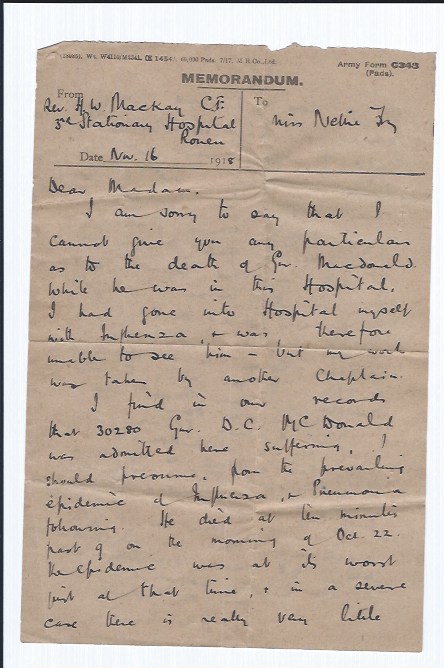 Wt. W4110/M1241. 60,000 Pads. 7/17. M.R.Co.,Ltd.
Army Form C348
(Pads).
MEMORANDUM.
From
Rev. H. W. Mackay C.F.
3rd Stationary Hospital
Rouen
To
Miss Nellie
Date Nov. 16 1918
Dear Madam.
I am sorry to say that I
cannot give you any particulars
as to the death of Gnr. Macdonald
while he was in this Hospital.
I had gone into Hospital myself
with Influenza, & was therefore
unable to see him – but my work
was taken by another Chaplain.
I find in our records
that 30280 Gnr. D. C. McDonald
was admitted here suffering, I
should presume, from the prevailing
epidemic of Influenza, & Pneumonia
following. He died at ten minutes
past 9 on the morning of Oct. 22.
The Epidemic was at its worst
just at that time, & in a severe
case there is really very little